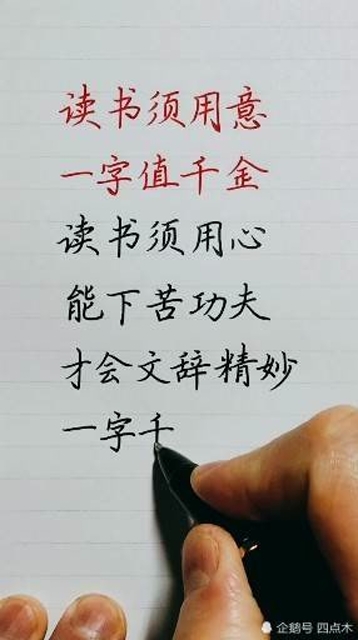 读书须用意
一字值千金
读书须用心
能下苦功夫
才会文辞精妙
一字千
企鹅号 四点木